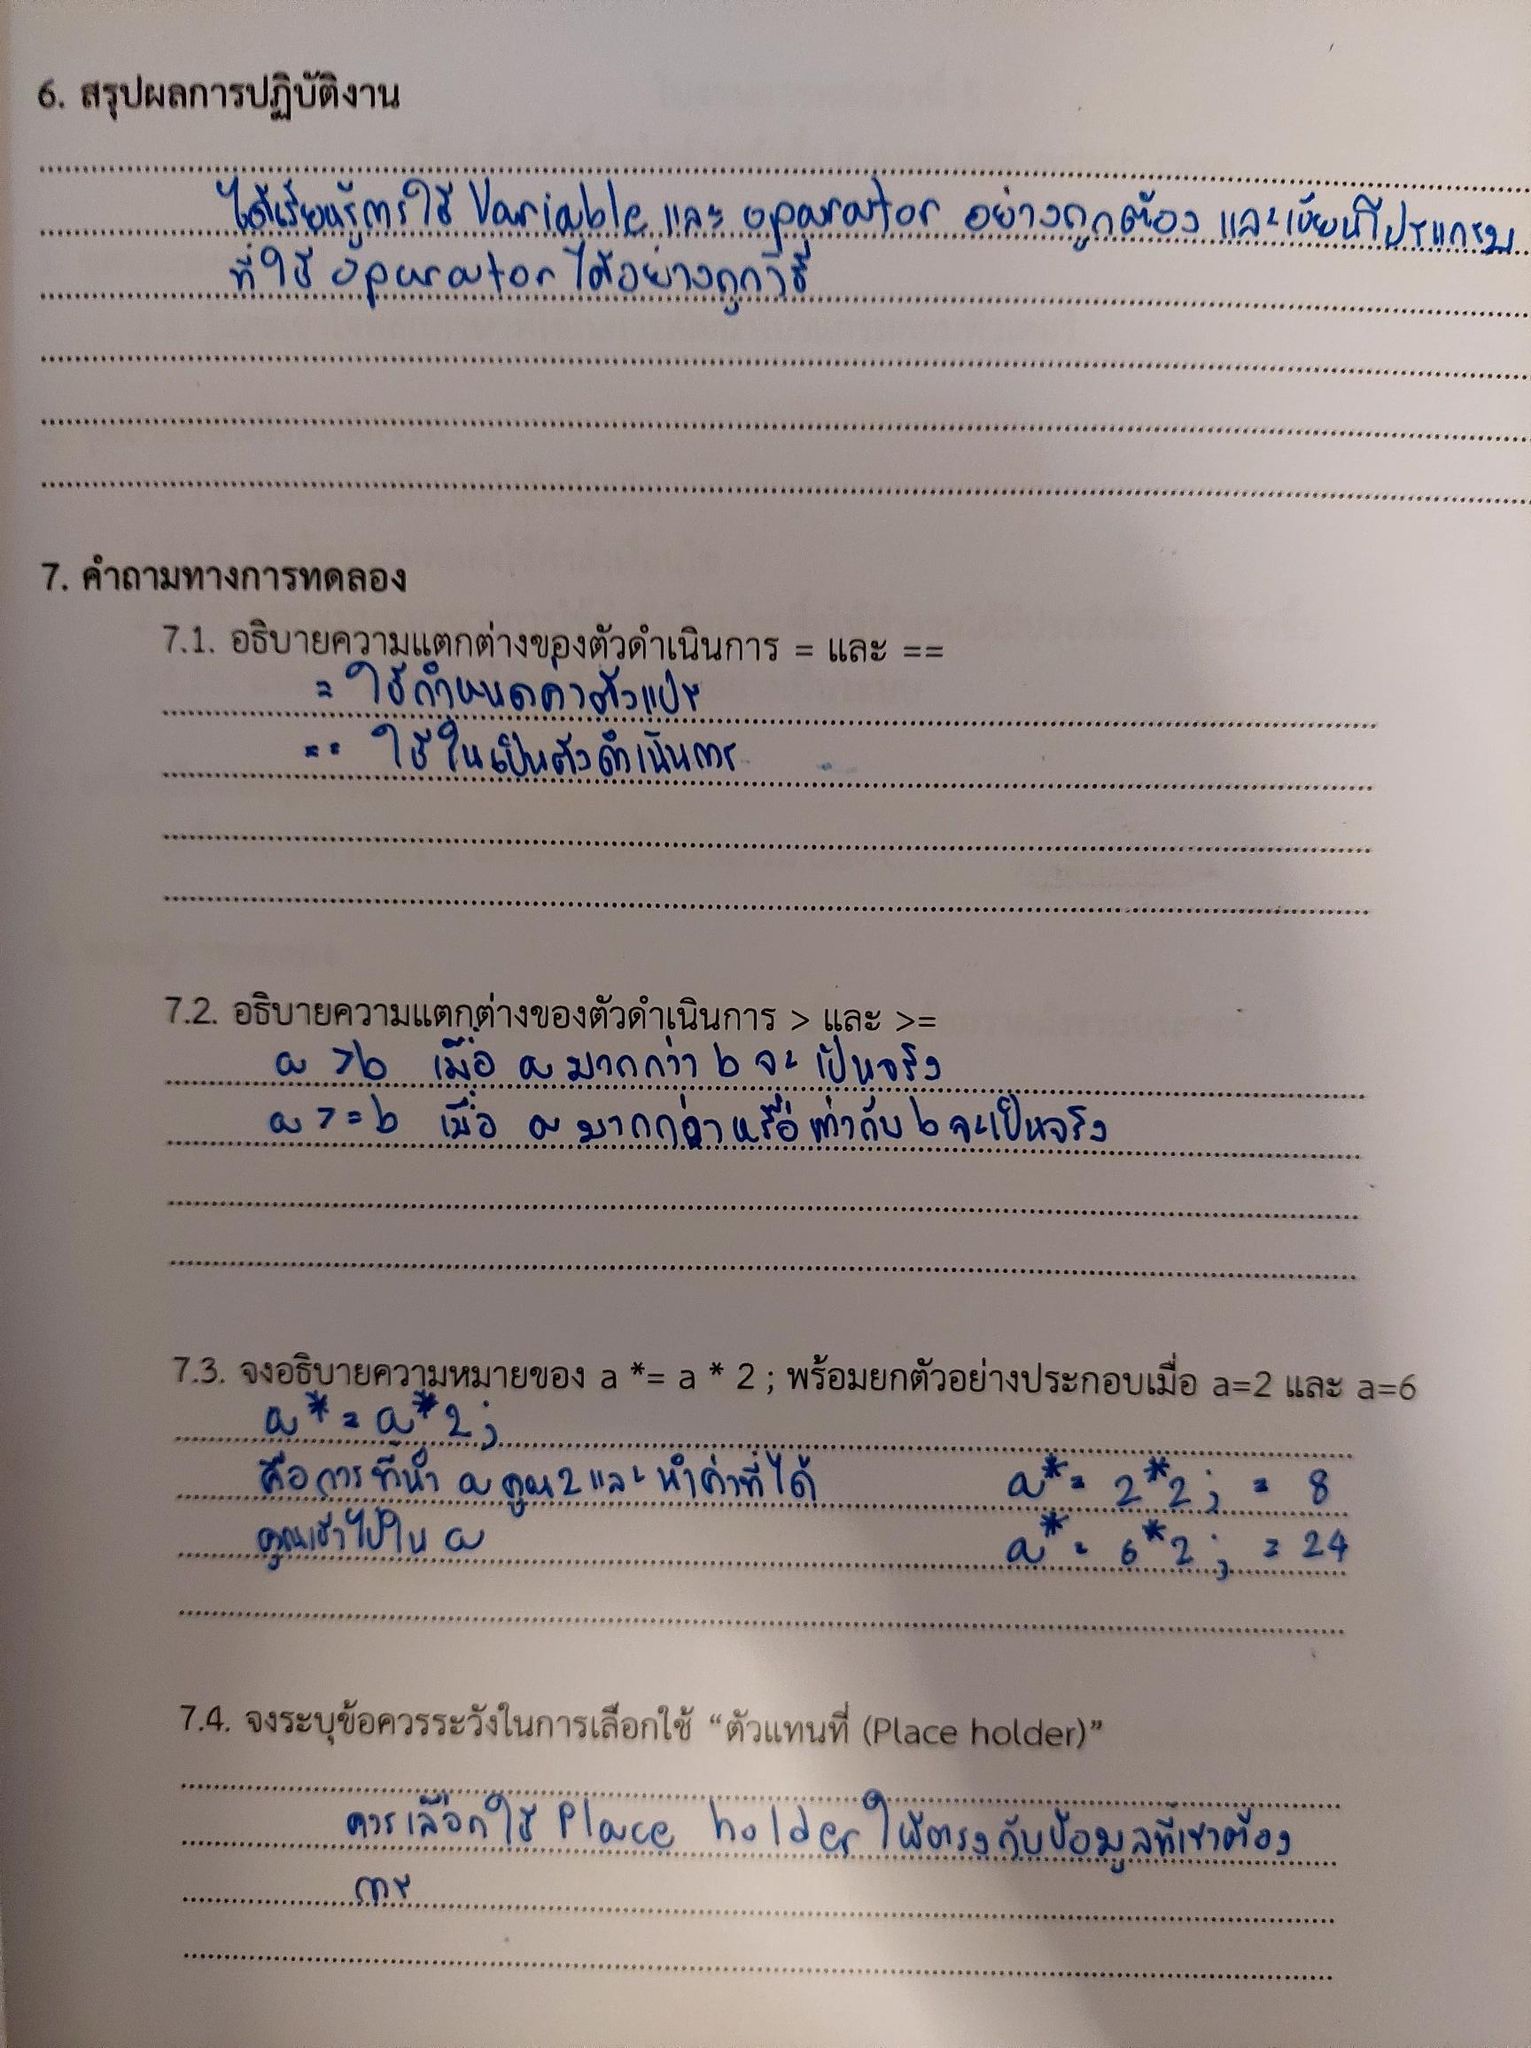 6. สรุปผลการปฏิบัติงาน
ได้เรียนรู้การใช้ Variable และ oparator อย่างถูกต้อง และเขียนโปรแกรม
ที่ใช้ oparator ได้อย่างถูกวิธี
7. คำถามทางการทดลอง
7.1. อธิบายความแตกต่างของตัวดำเนินการ = และ ==
= ใช้กำหนดค่าตัวแปร
== ใช้ในเป็นตัวดำเนินการ
7.2. อธิบายความแตกต่างของตัวดำเนินการ > และ >=
a > b เมื่อ a มากกว่า b จะ เป็นจริง
a >= b เมื่อ a มากกว่าหรือเท่ากับ b จะเป็นจริง
7.3. จงอธิบายความหมายของ a *= a * 2 ; พร้อมยกตัวอย่างประกอบเมื่อ a=2 และ a=6
a* = a*2;
คือการที่นำ a คูณ 2 และ นำค่าที่ได้ a* = 2*2; = 8
คูณเข้าไปใน a a* = 6*2; = 24
7.4. จงระบุข้อควรระวังในการเลือกใช้ “ตัวแทนที่ (Place holder)”
ควรเลือกใช้ Place holder ให้ตรงกับข้อมูลที่เราต้อง
การ